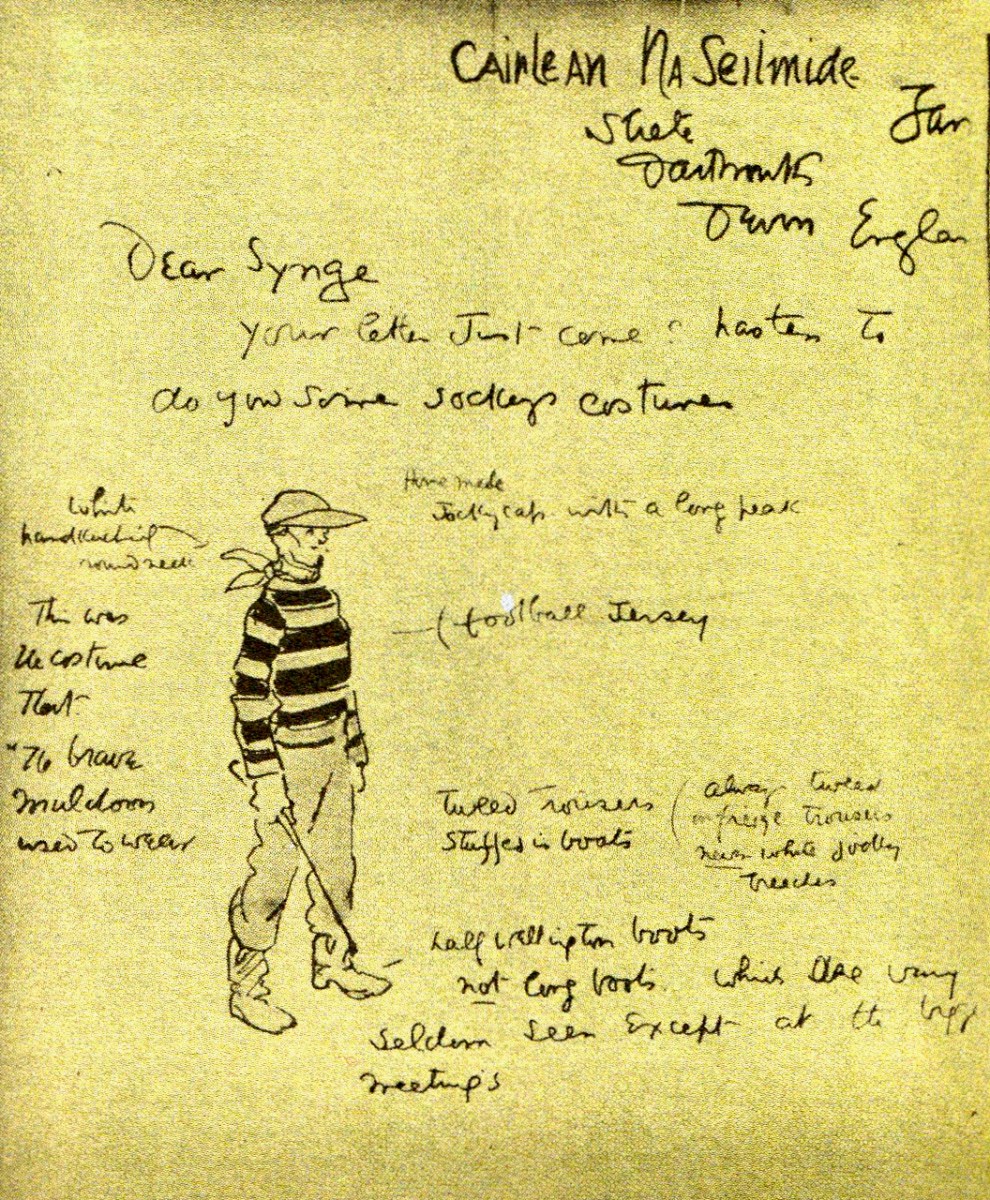 CAIRLEAN NA SEILMIDE
Strete Jan
Dartmouth
Devon Englan
Dear Synge
your letter Just come I hasten to
do you some Jockeys costumes
white
handkerchief
round neck
Home made
Jockey cap with a long peak
football Jersey
This was
the costume
That
"The brave
Muldoon
used to wear
tweed trousers
stuffed in boots
always tweed
or frieze trousers
never white jockey
breeches
half wellington boots
not long boots which are very
seldom seen Except at the bigg
meetings